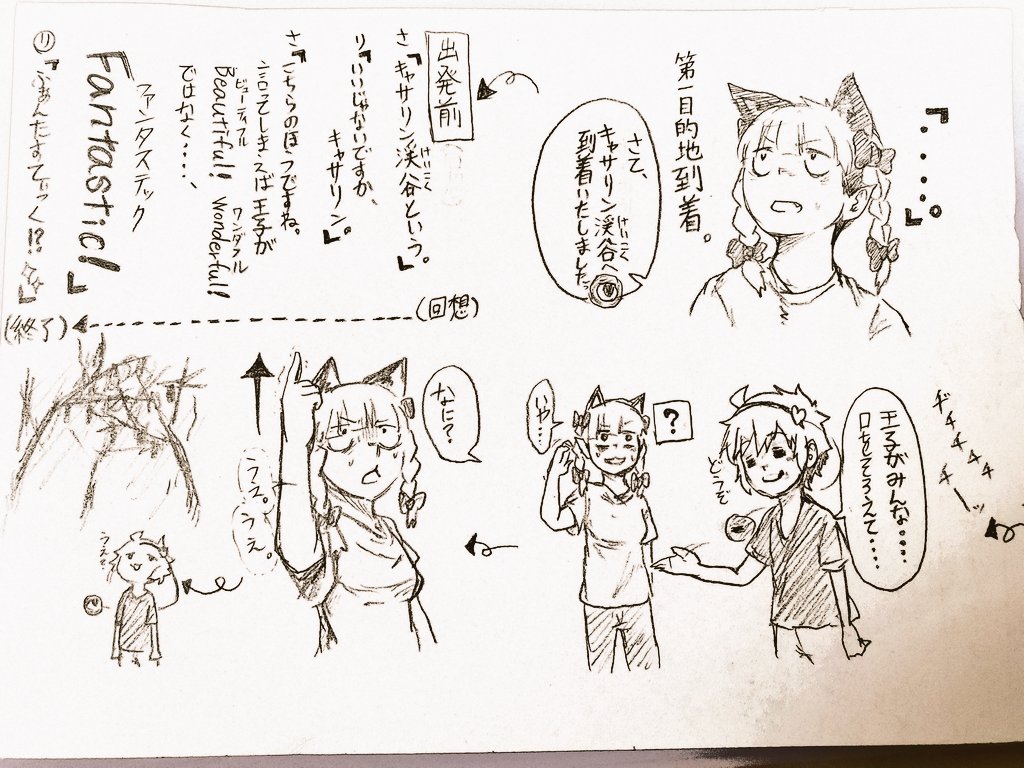 『・・・・。』
第一目的地到着。
さて、
キャサリン渓谷へ
けいこく
到着いたしました。
出発前
さ『キャサリン渓谷という。』
けいこく
り『いいじゃないですか、
キャサリン』。
さ『こちらのほうですね。
言ってしまえば王子が
Beautiful! Wonderful!
ビューティフル ワンダフル
ではなく・・・・、
ファンタスティック
Fantastic!』
り『ふぁんたすてぃっく!?
(回想)
(終了)
チチチチーッ
王子がみんな・・・・
口をそろえて・・・・
どうぞ
?
いや・・・
なに?
うえ。うえ。